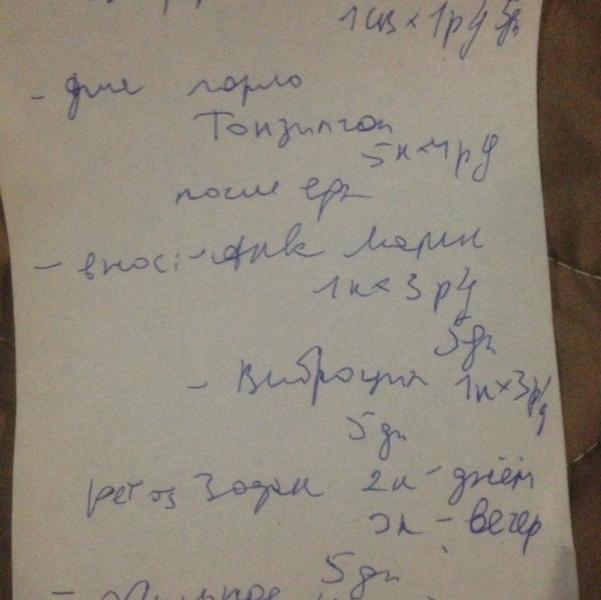 1 св × 1 р/д 5 дн
- для горло
Тонзилгон
5 к × 4 р/д
после еды
- в нос: - Аква Марис
1 к × 3 р/д
5 дн
- Виброцил 1 к × 3 р/д
5 дн
per os Зодак 2 к - днём
3 к - вечер
5 дн